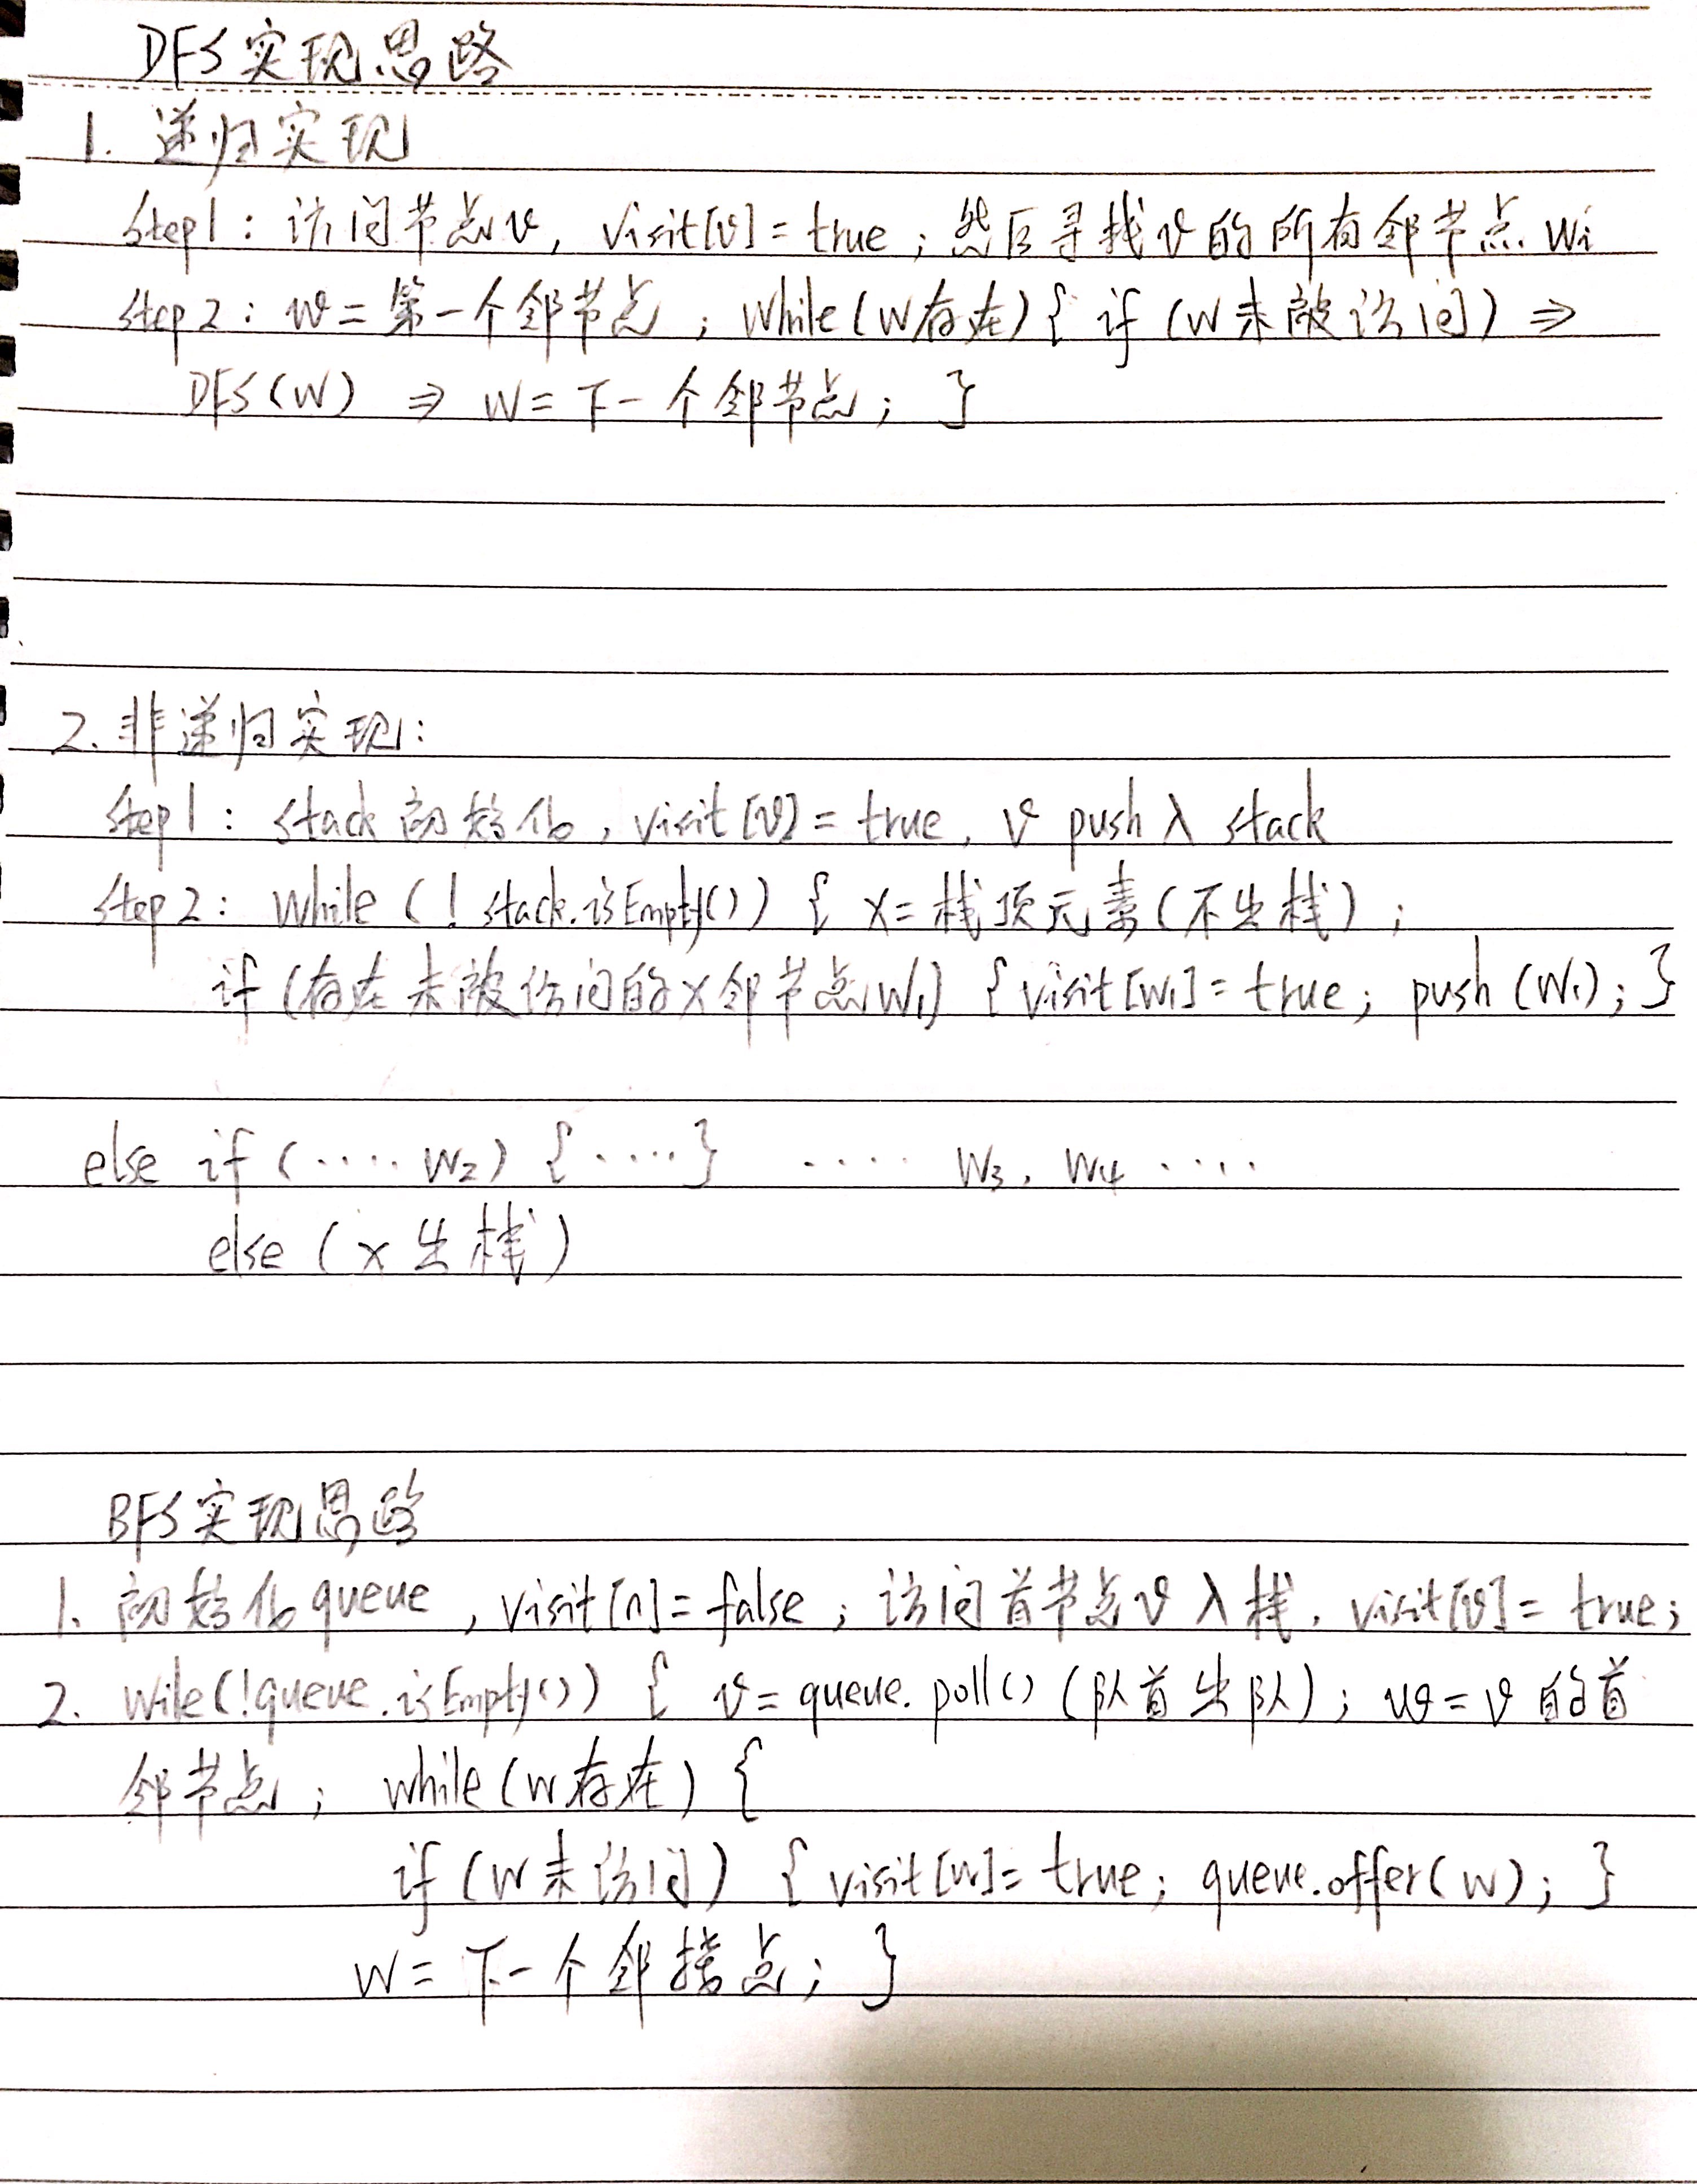 DFS实现思路
1. 递归实现
Step1: 访问节点v, visit[v]=true; 然后寻找v的所有邻节点wi
Step2: w=第一个邻节点; while(w存在){ if (w未被访问) ⇒
DFS(w) ⇒ w=下一个邻节点; }
2. 非递归实现:
Step1: stack初始化, visit[v]=true, v push入stack
Step2: while (!stack.isEmpty()) { x=栈顶元素(不出栈);
if (存在未被访问的x邻节点w1) {visit[w1]=true; push(w1); }
else if (.... w2) {....} .... w3, w4 ....
else (x出栈)
BFS实现思路
1. 初始化queue, visit[n]=false; 访问首节点v入栈, visit[v]=true;
2. wile(!queue.isEmpty()) { v=queue.poll()(队首出队); w=v的首
邻节点; while(w存在) {
if (w未访问) {visit[w]=true; queue.offer(w); }
w=下一个邻接点; }